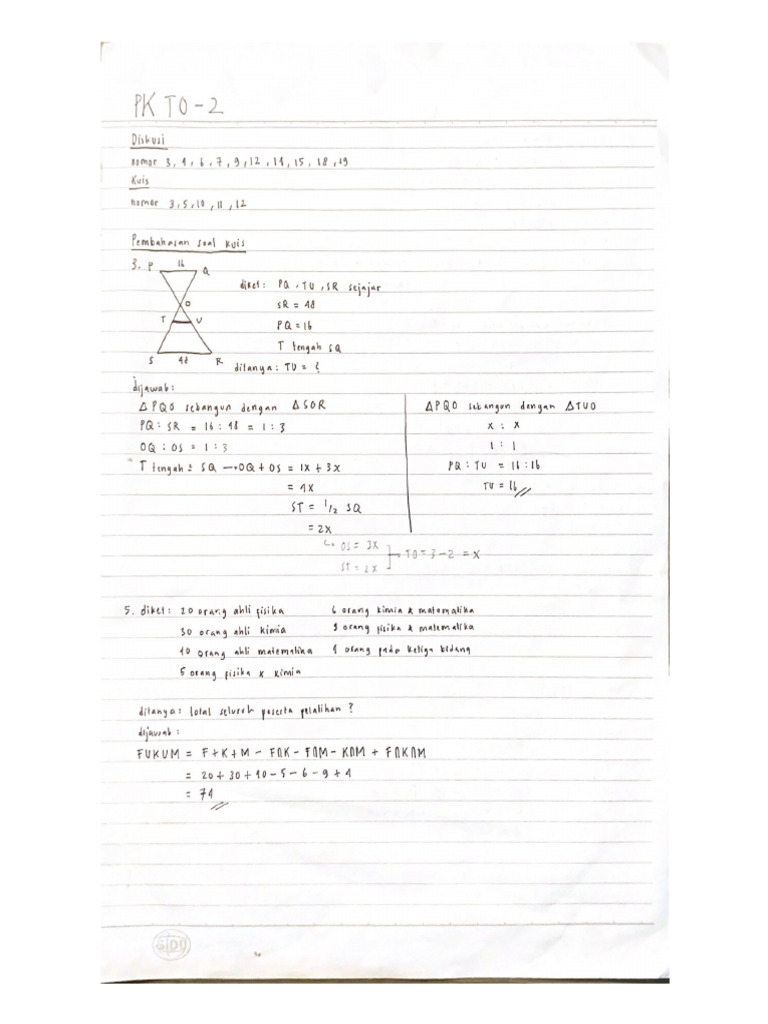 PK TO - 2
Diskusi
nomor 3, 4, 6, 7, 9, 12, 14, 15, 18, 19
Kuis
nomor 3, 5, 10, 11, 12
Pembahasan soal kuis
3. P 16 Q
O
T U
S 48 R
diket: PQ, TU, SR sejajar
SR = 48
PQ = 16
T tengah SQ
ditanya: TU = ?
dijawab:
△PQO sebangun dengan △SOR
PQ : SR = 16 : 48 = 1 : 3
OQ : OS = 1 : 3
T tengah = SQ → OQ + OS = 1X + 3X
= 4X
ST = 1/2 SQ
= 2X
↳ OS = 3X
ST = 2X
→ TO = 3 - 2 = X
△PQO sebangun dengan △TUO
X : X
1 : 1
PQ : TU = 16 : 16
TU = 16
5. diket: 20 orang ahli fisika
30 orang ahli kimia
40 orang ahli matematika
5 orang fisika & kimia
6 orang kimia & matematika
9 orang fisika & matematika
4 orang pada ketiga bidang
ditanya: total seluruh peserta pelatihan ?
dijawab:
FUKUM = F + K + M - F∩K - F∩M - K∩M + F∩K∩M
= 20 + 30 + 40 - 5 - 6 - 9 + 4
= 74
SIDU